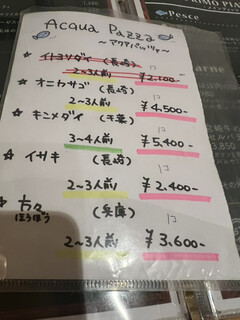 Acqua Pazza
～アクアパッツァ～
☆ イトヨリダイ (長崎)
2~3人前 ¥2,100-
☆ オニカサゴ (長崎)
2~3人前 ¥4,500-
☆ キンメダイ (千葉)
3~4人前 ¥5,400-
☆ イサキ (長崎)
2~3人前 ¥2,400-
☆ 方々 (兵庫)
ほうぼう
2~3人前 ¥3,600-
Pesce